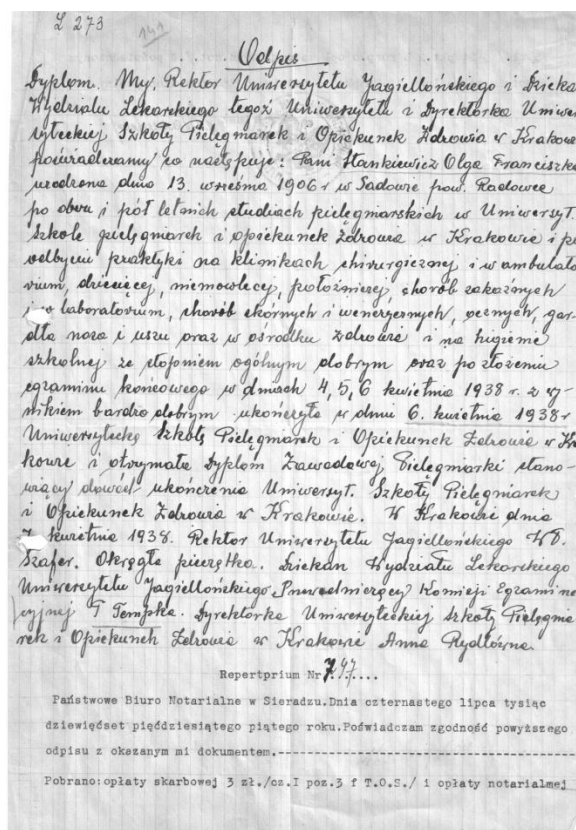 L 273
141
Odpis
Dyplom. My, Rektor Uniwersytetu Jagiellońskiego i Dzieka
Wydziału Lekarskiego tegoż Uniwersytetu i Dyrektorka Uniwer
syteckiej Szkoły Pielęgniarek i Opiekunek Zdrowia w Krakowie
poświadczamy co następuje: Pani Stankiewicz Olga Franciszka
urodzona dnia 13. września 1906 r w Sadowie pow. Radowce
po obwu i pół letnich studiach pielęgniarskich w Uniwersyt.
Szkole pielęgniarek i opiekunek zdrowia w Krakowie i po
odbyciu praktyki na klinikach chirurgicznej i w ambulato
rium, dziecięcej, niemowlęcej, położniczej, chorób zakaźnych
i w laboratorium, chorób skórnych i wenerycznych, ocznych, gar
dła nosa i uszu oraz w ośrodku zdrowia i na higienie
szkolnej ze stopniem ogólnym dobrym oraz po złożeniu
egzaminu końcowego w dniach 4, 5, 6 kwietnia 1938 r. z wy-
nikiem bardzo dobrym ukończyła w dniu 6. kwietnia 1938 r
Uniwersytecką Szkołę Pielęgniarek i Opiekunek Zdrowia w Kra
kowie i otrzymała Dyplom Zawodowej Pielęgniarki stano-
wiący dowód ukończenia Uniwersyt. Szkoły Pielęgniarek
i Opiekunek Zdrowia w Krakowie. W Krakowie dnia
7 kwietnia 1938. Rektor Uniwersytetu Jagiellońskiego Wł.
Szafer. Okrągła pieczątka. Dziekan Wydziału Lekarskiego
Uniwersytetu Jagiellońskiego Przewodniczący Komisji Egzamina
cyjnej T Tempka. Dyrektorka Uniwersyteckiej Szkoły Pielęgnia
rek i Opiekunek Zdrowia w Krakowie Anna Rydlówna.
Repertprium Nr 797....
Państwowe Biuro Notarialne w Sieradzu.Dnia czternastego lipca tysiąc
dziewięćset pięćdziesiątego piątego roku.Poświadczam zgodność powyższego
odpisu z okazanym mi dokumentem.---------------------------------------
Pobrano:opłaty skarbowej 3 zł./cz.I poz.3 f T.O.S./ i opłaty notarialnej